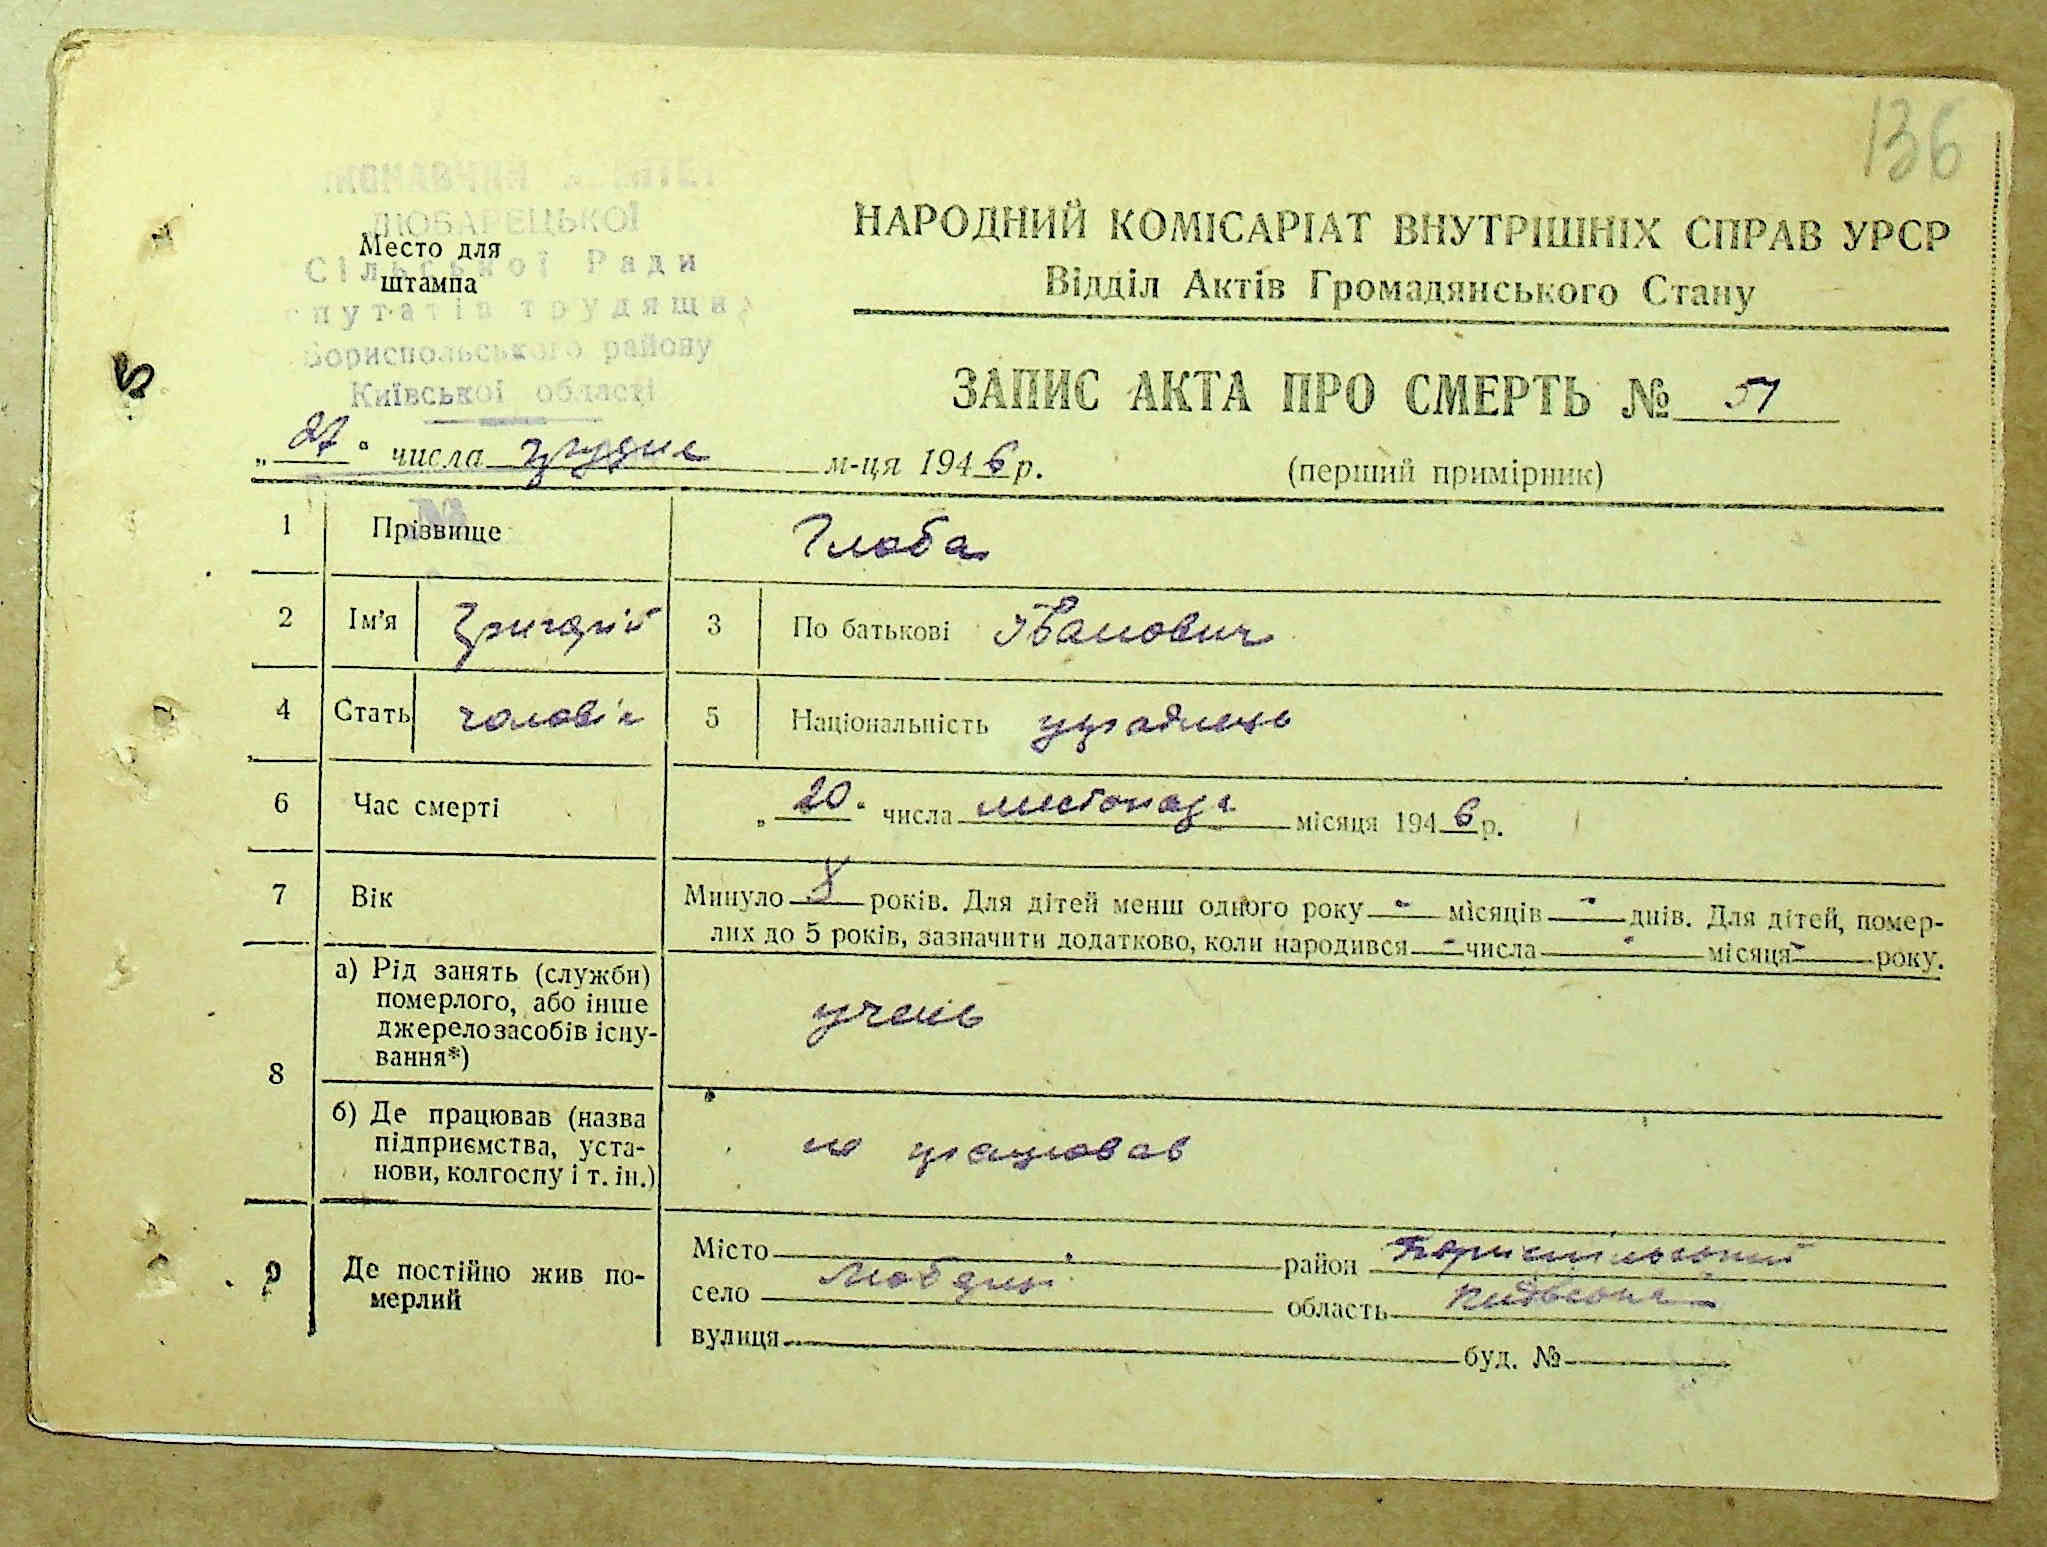 136
ЛЮБАРЕЦЬКОЇ
Сільської Ради
Бориспольського району
Київської області
Место для
штампа
НАРОДНИЙ КОМІСАРІАТ ВНУТРІШНІХ СПРАВ УРСР
Відділ Актів Громадянського Стану
ЗАПИС АКТА ПРО СМЕРТЬ № 51
„27“ числа грудня м-ця 1946 р.
(перший примірник)
1 Прізвище Глоба
2 Ім'я Григорій 3 По батькові Іванович
4 Стать чоловік 5 Національність українець
6 Час смерті „20“ числа листопада місяця 1946 р.
7 Вік Минуло 8 років. Для дітей менш одного року - місяців - днів. Для дітей, помер-
лих до 5 років, зазначити додатково, коли народився - числа - місяця - року.
8 а) Рід занять (служби)
померлого, або інше
джерело засобів існу-
вання*)
учень
б) Де працював (назва
підприємства, уста-
нови, колгоспу і т. ін.)
не працював
9 Де постійно жив по-
мерлий
Місто район Бориспільський
село Любарці область Київська
вулиця буд. №